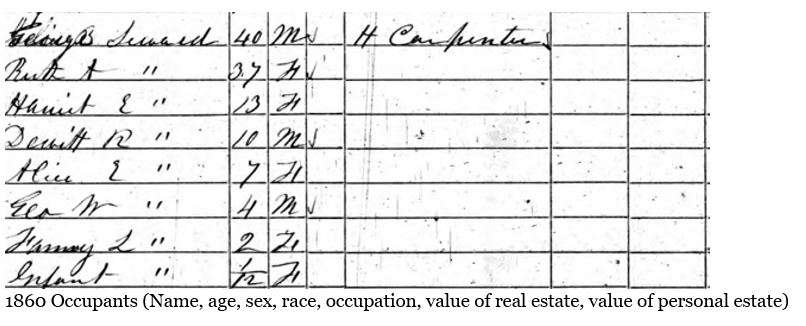 George B Seward 40 M H Carpenter
Ruth A " 37 F
Harriet E " 13 F
Dewitt R " 10 M
Alice E " 7 F
Geo W " 4 M
Fanny L " 2 F
Infant " 1/12 F
1860 Occupants (Name, age, sex, race, occupation, value of real estate, value of personal estate)